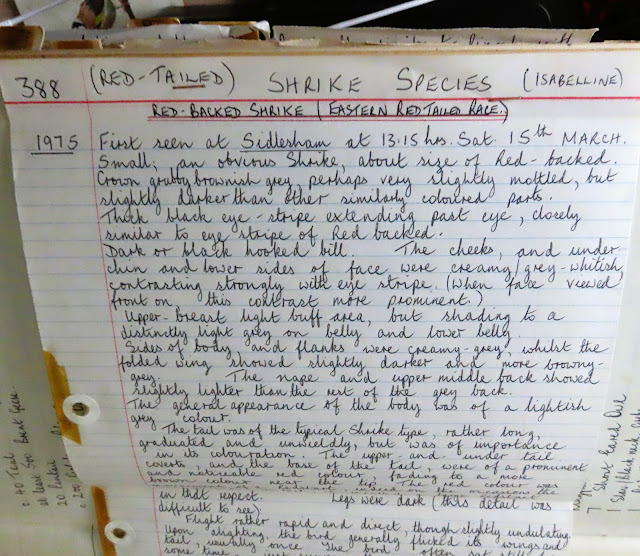 388 (RED-TAILED) SHRIKE SPECIES (ISABELLINE)
RED-BACKED SHRIKE (EASTERN RED TAILED RACE.)
1975 First seen at Sidlesham at 13.15 hrs. Sat. 15th MARCH.
Small; an obvious Shrike, about size of Red-backed.
Crown grubby brownish grey, perhaps very slightly mottled, but
slightly darker than other similarly coloured parts.
Thick black eye-stripe extending past eye, closely
similar to eye stripe of Red backed.
Dark or black hooked bill. The cheeks, and under
chin and lower sides of face were creamy/grey-whitish,
contrasting strongly with eye stripe. (When face viewed
front on, this contrast more prominent.)
Upper-breast light buff area, but shading to a
distinctly light grey on belly and lower belly.
Sides of body and flanks were creamy-grey, whilst the
folded wing showed slightly darker and more browny-
grey. The nape and upper middle back showed
slightly lighter than the rest of the grey back.
The general appearance of the body was of a lightish
grey colour.
The tail was of the typical Shrike type, rather long,
graduated and unwieldy, but was of importance
in its colouration. The upper and under tail
coverts and the base of the tail, were of a prominent
and noticeable red colour, fading to a more
brown colour near the tip. The red colour was
in that respect. Legs were dark (this detail was
difficult to see).
Flight rather rapid and direct, though slightly undulating.
Upon alighting, the bird generally flicked its wings and
tail, usually once. The bird
40 Teal
20
7 Short Eared Owl